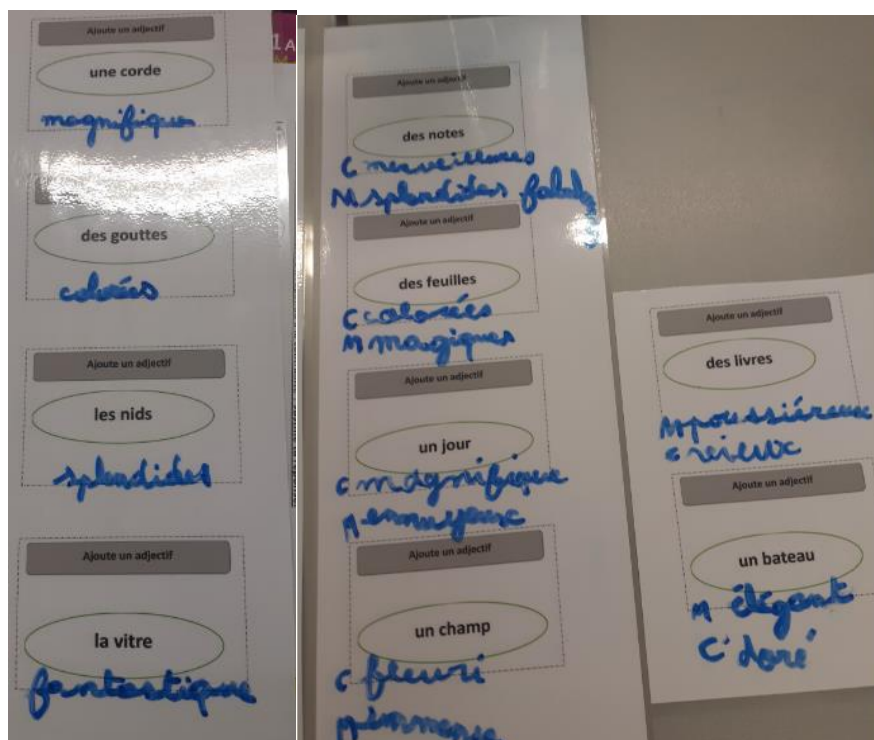 Ajoute un adjectif
une corde
magnifique
des gouttes
colorées
Ajoute un adjectif
les nids
splendides
Ajoute un adjectif
la vitre
fantastique
1A
Ajoute un adjectif
des notes
C merveilleuses
M splendides
Ajoute un adjectif
des feuilles
C colorées
M magiques
Ajoute un adjectif
un jour
C magnifique
M ennuyeux
Ajoute un adjectif
un champ
C fleuri
M immense
Ajoute un adjectif
des livres
M poussiéreux
C vieux
Ajoute un adjectif
un bateau
M élégant
C doré